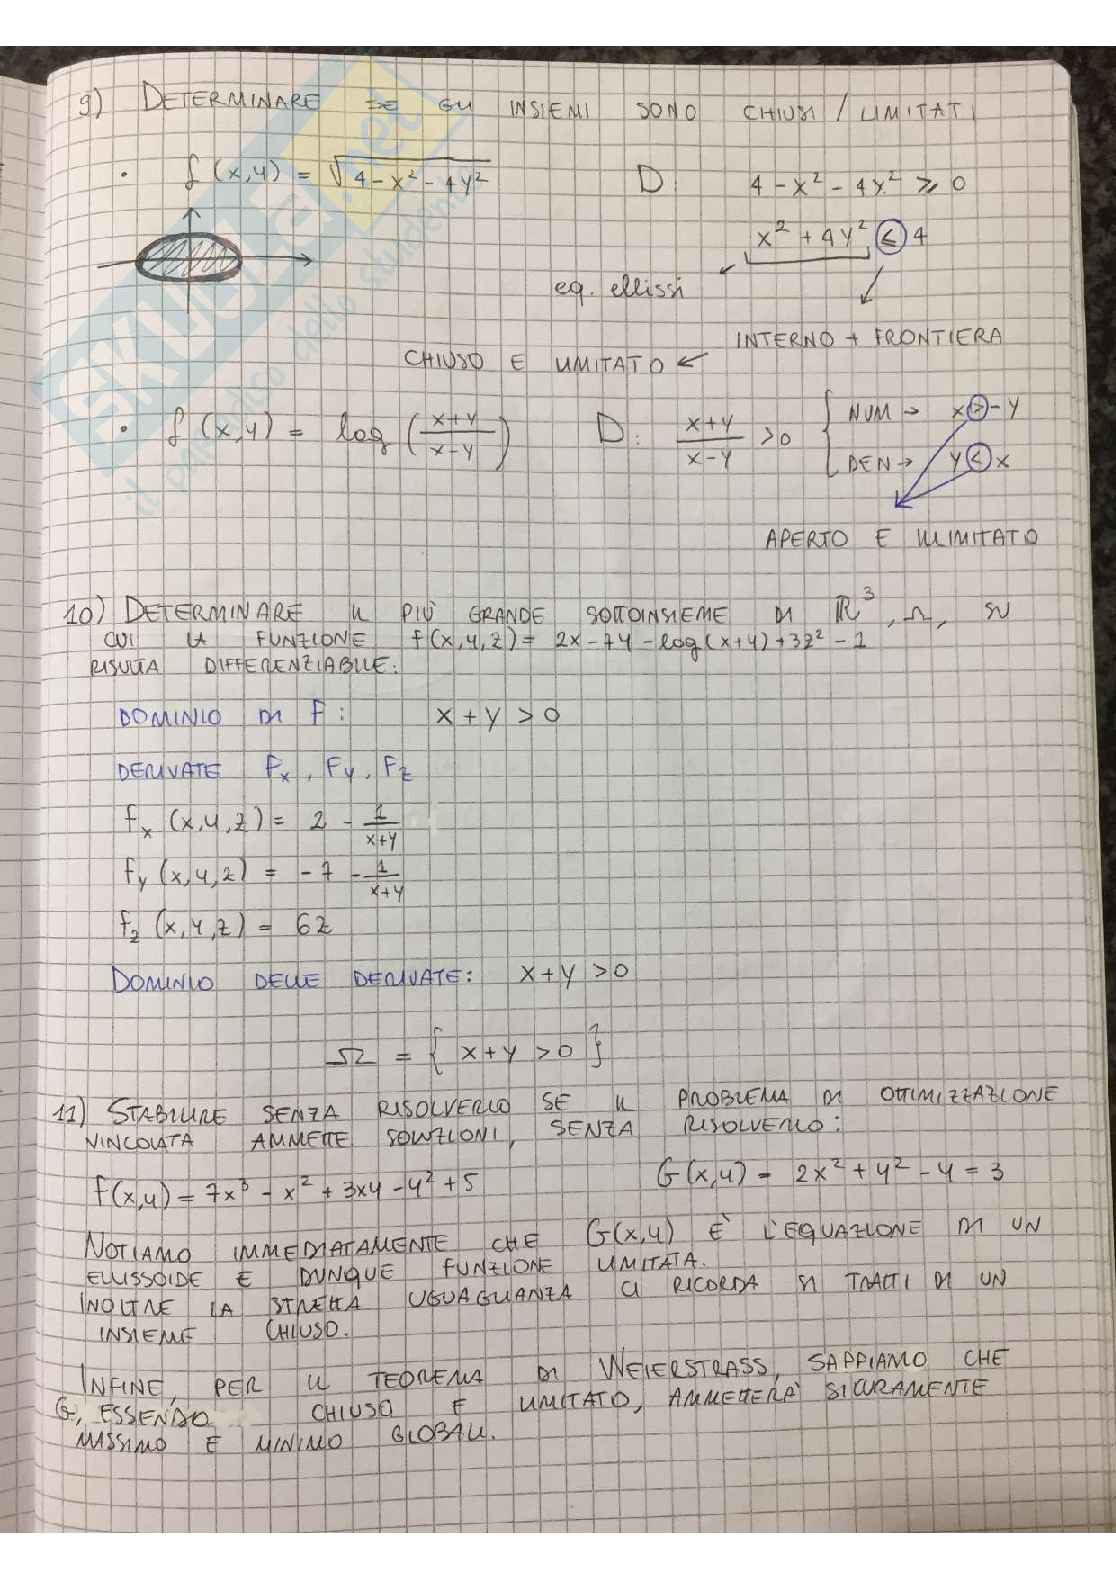 9) DETERMINARE SE GLI INSIEMI SONO CHIUSI / LIMITATI
• f(x,y) = √4-x²-4y² D: 4-x²-4y² ⩾ 0
x²+4y² ≤ 4
eq. ellissi
INTERNO + FRONTIERA
CHIUSO E LIMITATO ←
• f(x,y) = log (x+y/x-y) D: x+y/x-y >0 { NUM → x>-y
DEN → y<x
APERTO E ILLIMITATO
10) DETERMINARE IL PIÙ GRANDE SOTTOINSIEME DI ℝ³, Ω, SU
CUI LA FUNZIONE f(x,y,z) = 2x-7y-log(x+y)+3z²-1
RISULTA DIFFERENZIABILE:
DOMINIO DI F: x+y>0
DERIVATE Fx, Fy, Fz
fx (x,y,z) = 2 - 1/x+y
fy (x,y,z) = -7 - 1/x+y
fz (x,y,z) = 6z
DOMINIO DELLE DERIVATE: x+y>0
Ω = { x+y>0 }
11) STABILIRE SENZA RISOLVERLO SE IL PROBLEMA DI OTTIMIZZAZIONE
VINCOLATA AMMETTE SOLUZIONI, SENZA RISOLVERLO:
f(x,y) = 7x³-x²+3xy-y²+5 G(x,y) = 2x²+y²-y=3
NOTIAMO IMMEDIATAMENTE CHE G(x,y) È L'EQUAZIONE DI UN
ELLISSOIDE E DUNQUE FUNZIONE LIMITATA.
INOLTRE LA STRETTA UGUAGLIANZA CI RICORDA SI TRATTI DI UN
INSIEME CHIUSO.
INFINE, PER IL TEOREMA DI WEIERSTRASS, SAPPIAMO CHE
G, ESSENDO CHIUSO E LIMITATO, AMMETTERÀ SICURAMENTE
MASSIMO E MINIMO GLOBALI.
SKUOLA.net
il paradiso dello studente